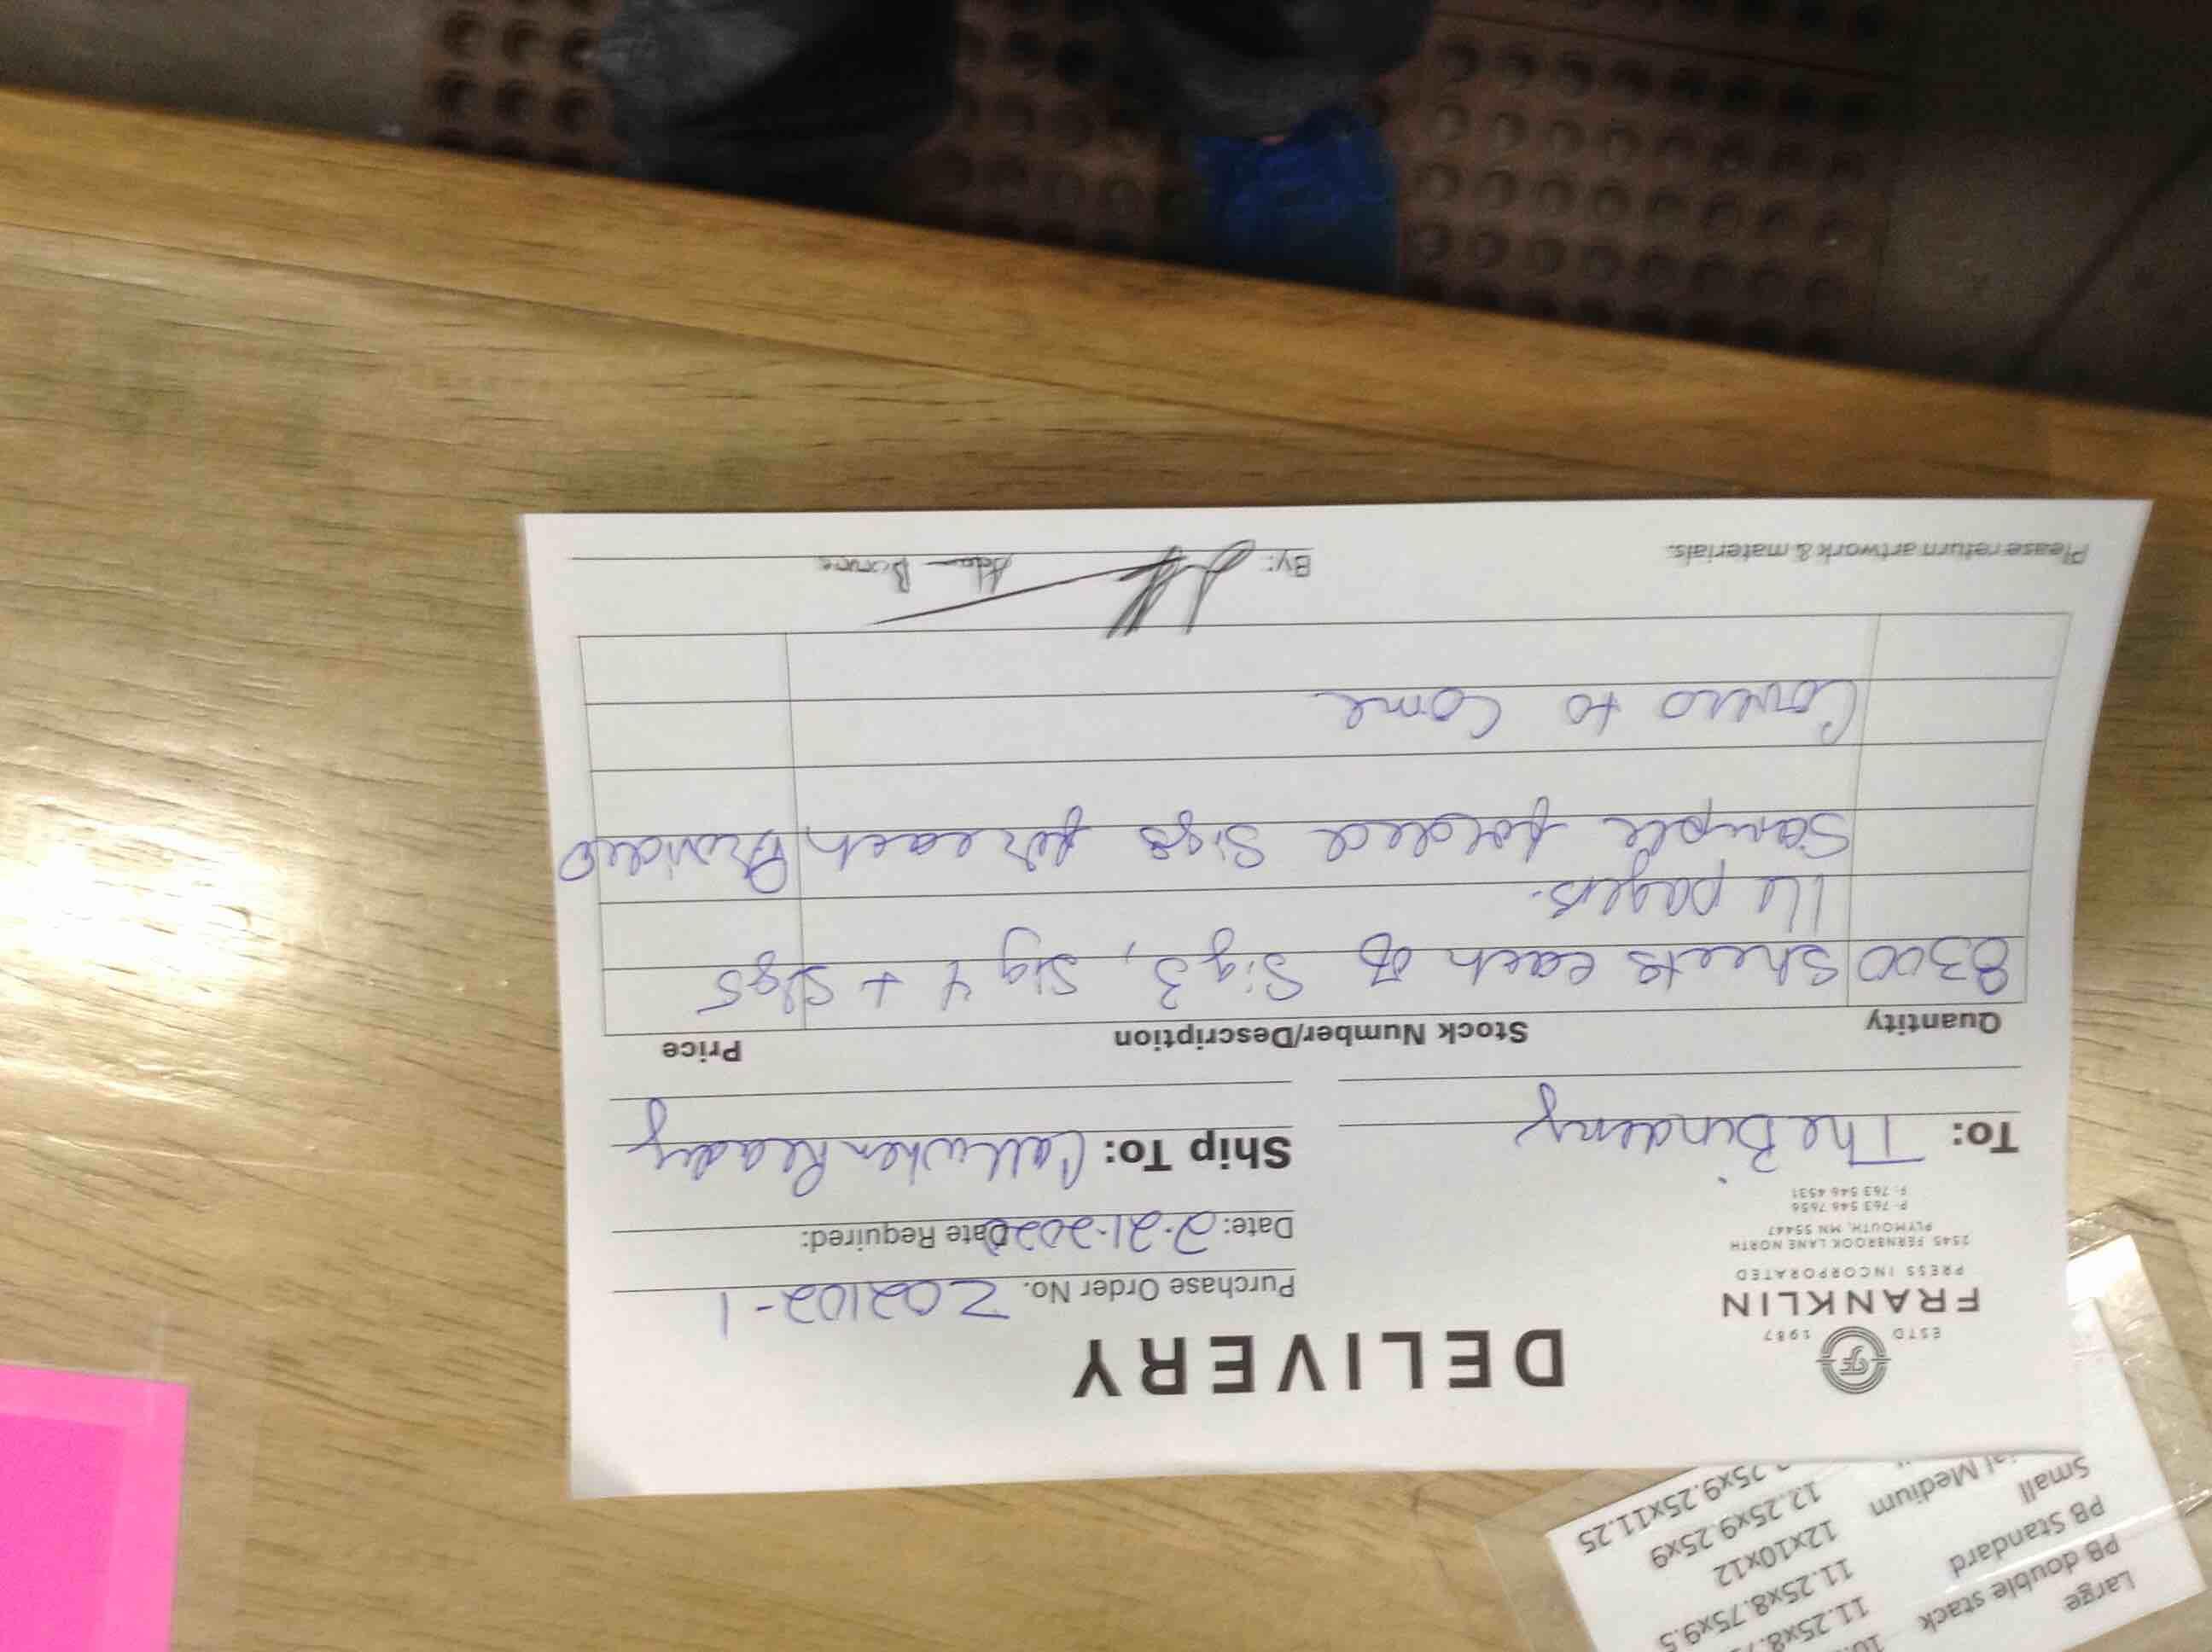 ESTD 1987
FRANKLIN
PRESS INCORPORATED
2545 FERNBROOK LANE NORTH
PLYMOUTH, MN 55447
P: 763 546 7656
F: 763 546 4531
DELIVERY
Purchase Order No. 202102-1
Date: 2-21-2022 Date Required:
To: The Bindery
Ship To: Call when Ready
Quantity Stock Number/Description Price
8300 Sheets each of Sig 3, Sig 4 + Sig 5
16 pagers.
Sample folded Sigs for each Provided
Covers to Come
Please return artwork & materials.
By: Adam
Large
PB double stack 11.25x8.7
PB Standard 11.25x8.75x9.5
Small 12x10x12
ial Medium 12.25x9.25x9
.25x9.25x11.25